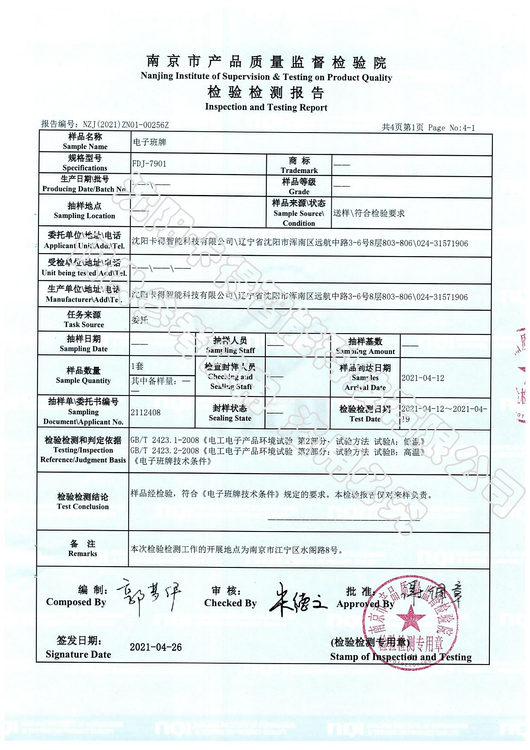 南京市产品质量监督检验院
Nanjing Institute of Supervision & Testing on Product Quality
检验检测报告
Inspection and Testing Report
报告编号：NZJ(2021)ZN01-00256Z 共4页第1页 Page No:4-1
样品名称 电子班牌
Sample Name
规格型号 FDJ-7901 商 标 ——
Specifications Trademark
生产日期\批号 ——\—— 样品等级 ——
Producing Date/Batch No. Grade
抽样地点 —— 样品来源\状态 送样\符合检验要求
Sampling Location Sample Source\
Condition
委托单位\地址\电话 沈阳卡得智能科技有限公司\辽宁省沈阳市浑南区远航中路3-6号8层803-806\024-31571906
Applicant Unit\Add\Tel.
受检单位\地址\电话 ——\——\——
Unit being tested Add\Tel.
生产单位\地址\电话 沈阳卡得智能科技有限公司\辽宁省沈阳市浑南区远航中路3-6号8层803-806\024-31571906
Manufacturer\Add\Tel.
任务来源 委托
Task Source
抽样日期 —— 抽样人员 —— 抽样基数 ——
Sampling Date Sampling Staff Sampling Amount
样品数量 1套 检查封样人员 —— 样品到达日期 2021-04-12
Sample Quantity 其中备样量：—— Checking and Sealing Staff Samples Arrival Date
抽样单\委托书编号 2112408 封样状态 —— 检验检测日期 2021-04-12~2021-04-19
Sampling Document\Applicant No. Sealing State Test Date
检验检测和判定依据 GB/T 2423.1-2008《电工电子产品环境试验 第2部分：试验方法 试验A：低温》
Testing/Inspection GB/T 2423.2-2008《电工电子产品环境试验 第2部分：试验方法 试验B：高温》
Reference/Judgment Basis 《电子班牌技术条件》
检验检测结论 样品经检验，符合《电子班牌技术条件》规定的要求。本检验报告仅对来样负责。
Test Conclusion
备 注 本次检验检测工作的开展地点为南京市江宁区水阁路8号。
Remarks
编 制： 审 核： 批 准：
Composed By Checked By Approved By
南京市产品质量监督检验院
检验检测专用章
签发日期： 2021-04-26 (检验检测专用章)
Signature Date Stamp of Inspection and Testing